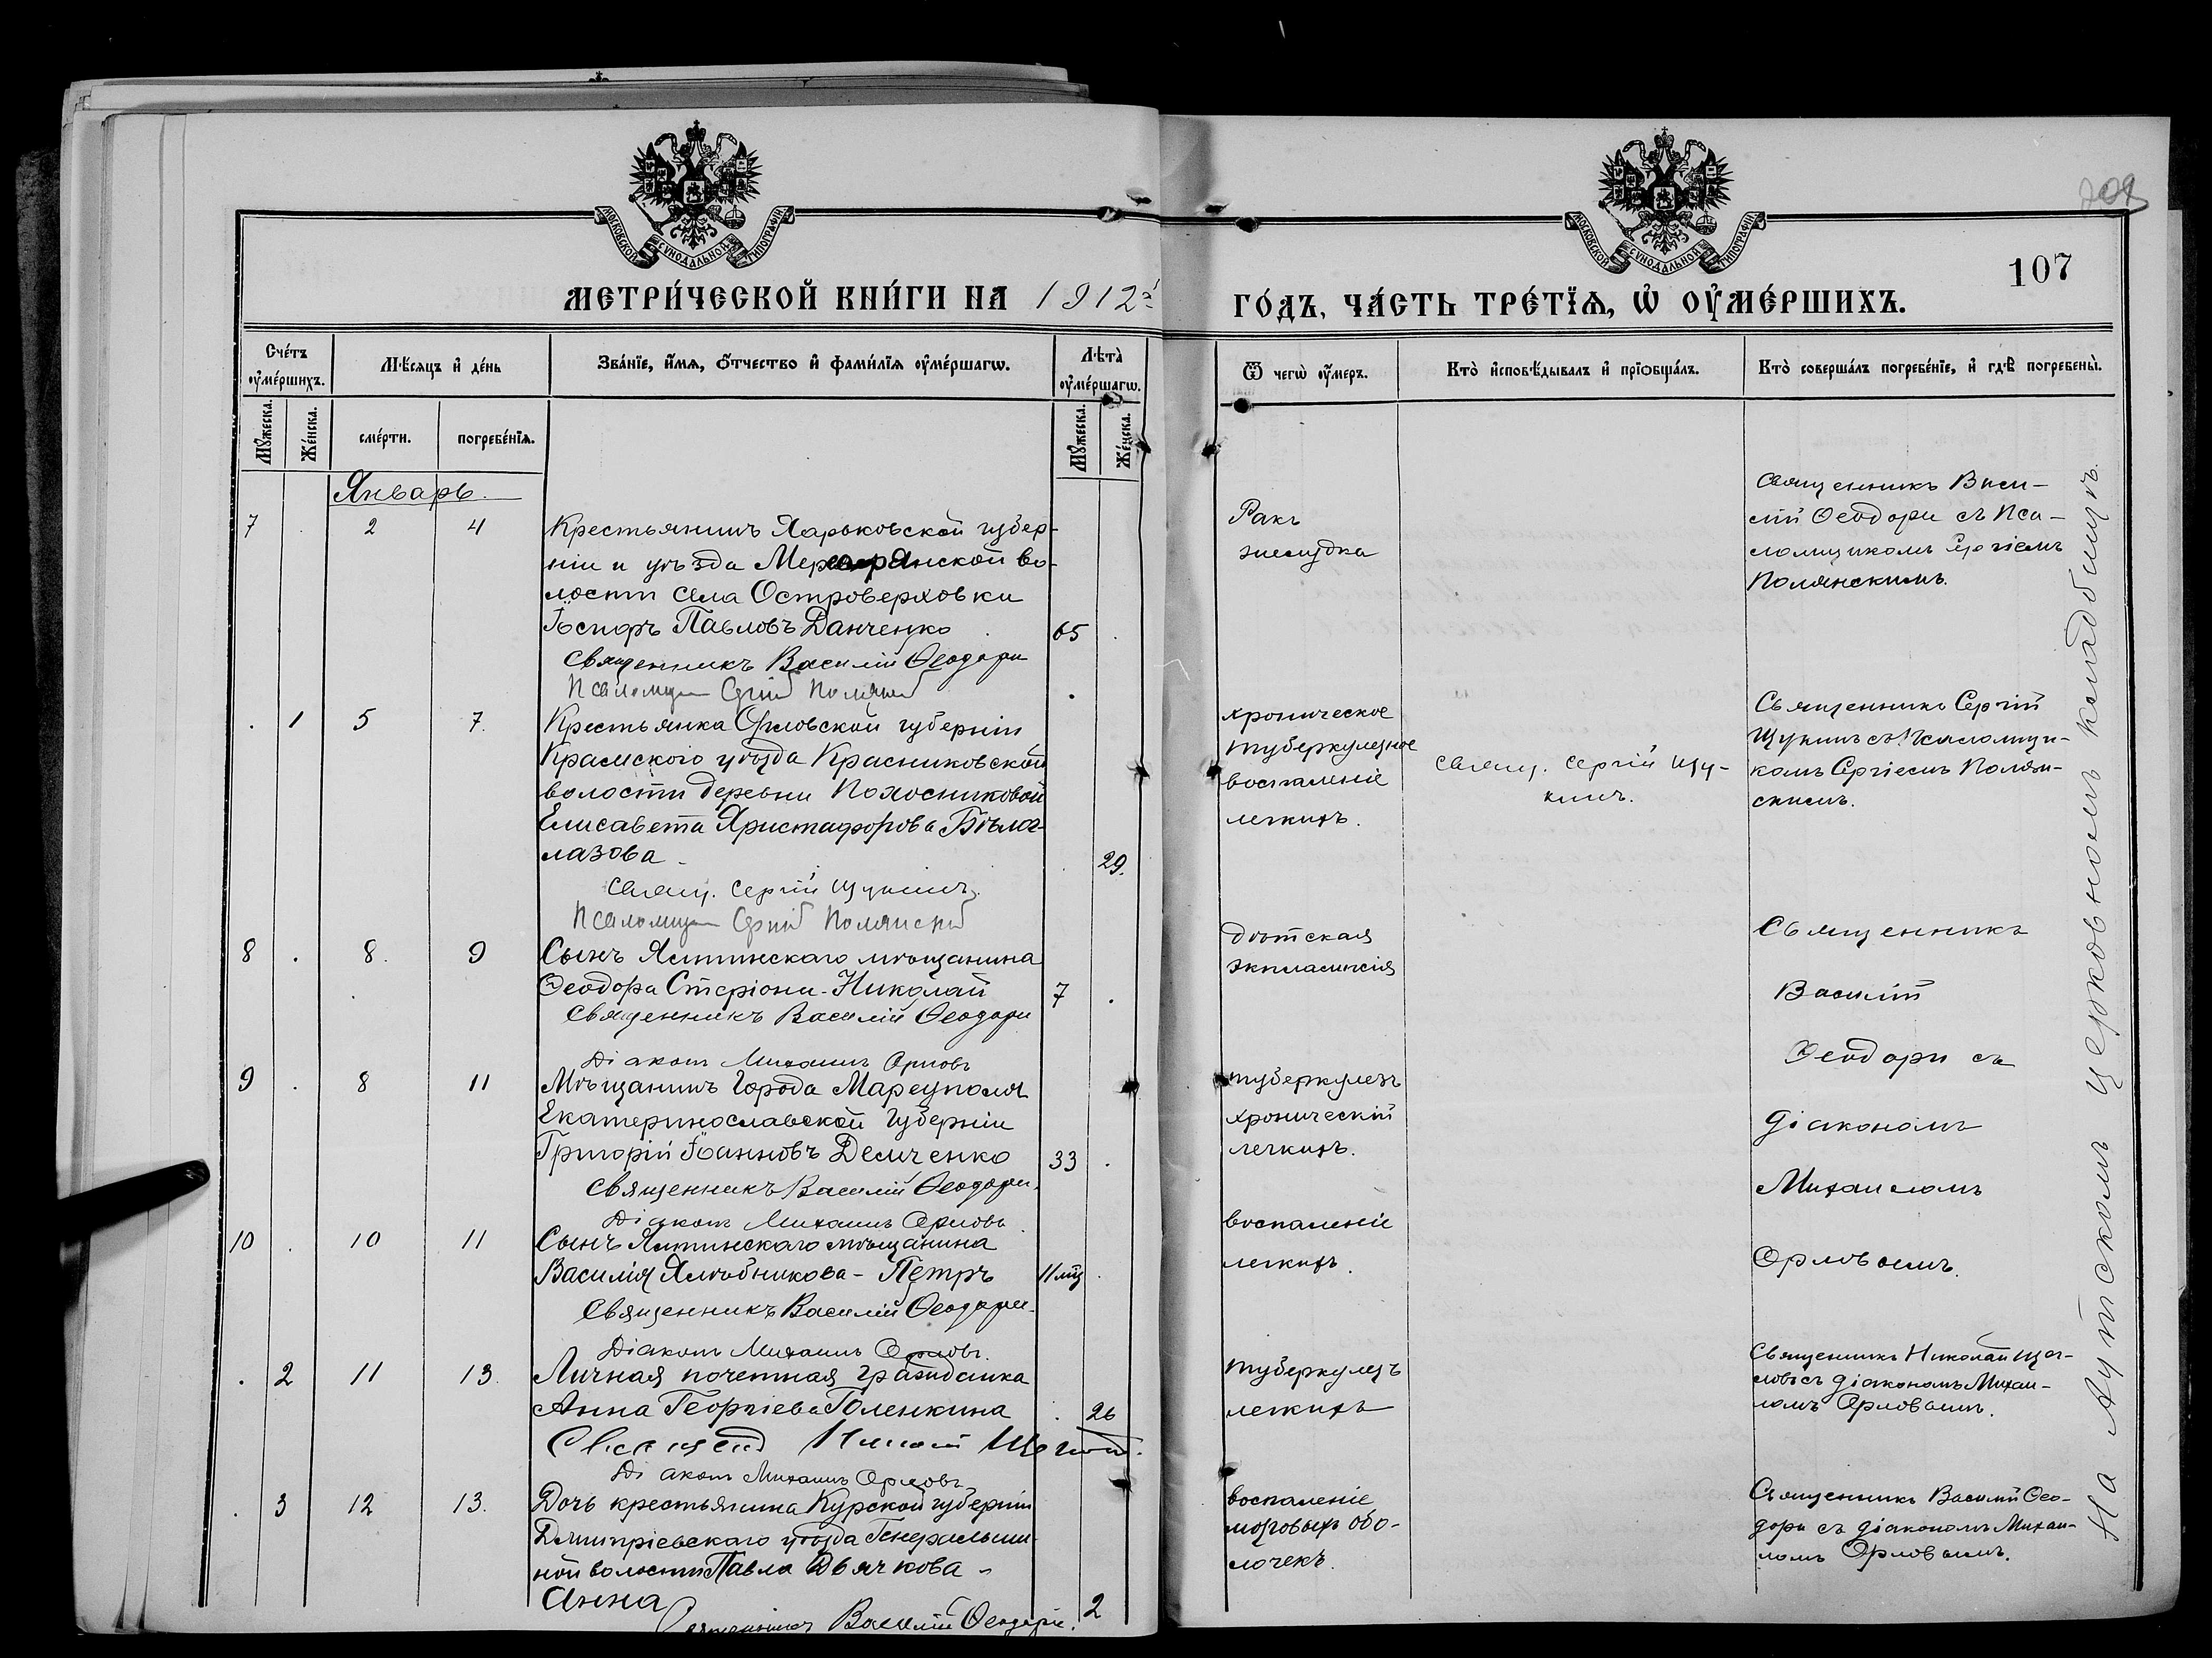 МОСКОВСКОЙ СѴНОДАЛЬНОЙ ТИПОГРАФІИ
МОСКОВСКОЙ СѴНОДАЛЬНОЙ ТИПОГРАФІИ
107
МЕТРИ́ЧЕСКОЙ КНИ́ГИ НА 1912 ГО́ДЪ, ЧА́СТЬ ТРЕ́ТЇѦ, Ѡ҆ ОУ҆МЕ́РШИХЪ.
Сче́тъ оу҆ме́ршихъ.
Мѣ́сяцъ и҆ де́нь
Зва́нїе, и҆́мѧ, ѻ҆́тчество и҆ фами́лїѧ оу҆ме́ршагѡ.
Лѣ́та оу҆ме́ршагѡ.
Ѿ чегѡ̀ оу҆́меръ.
Кто̀ и҆сповѣ́дывалъ и҆ прїѻбща́лъ.
Кто̀ соверша́лъ погребе́нїе, и҆ гдѣ̀ погребены̀.
Мꙋ́жеска.
Же́нска.
сме́рти.
погребе́нїѧ.
Мꙋ́жеска.
Же́нска.
Январь.
7 . 2 4
Крестьянинъ Харьковской губер-
ніи и уѣзда волости села Островерховки
Павловъ Данченко 65 .
Священникъ Василій Ѳеодори
Псаломщ Сергій Полянскій
Ракъ
желудка
Священникъ Васи-
лій Ѳеодори съ Пса-
ломщикомъ Сергіемъ
Полянскимъ.
. 1 5 7.
Крестьянка Орловской губерніи
Крамского уѣзда Красниковской
волости деревни Похосниковой
Елисавета Христафорова Бѣлог-
лазова 29.
Свящ. Сергій Щукинъ.
Псаломщ Сергій Полянскій
хроническое
туберкулезное
воспаленіе
легкихъ.
Свящ. Сергій Щу-
кинъ.
Священникъ Сергій
Щукинъ съ Псаломщи-
комъ Сергіемъ Полян-
скимъ.
8 . 8. 9
Сынъ Ялтинскаго мѣщанина
Ѳеодора Стеріони - Николай 7 .
Священникъ Василій Ѳеодори
Діаконъ Михаилъ Орловъ
дѣтская
экламксія
Священникъ
Василій
Ѳеодори съ
діакономъ
Михаиломъ
Орловымъ.
9 . 8 11
Мѣщанинъ города Мареуполя
Екатеринославской губерніи
Григорій Іоанновъ Демченко 33 .
Священникъ Василій Ѳеодори.
Діаконъ Михаилъ Орловъ
туберкулезъ
хроническій
легкихъ.
10 . 10 11
Сынъ Ялтинскаго мѣщанина
Василія Хлѣбникова - Петръ 11 мц .
Священникъ Василій Ѳеодори.
Діаконъ Михаилъ Орловъ.
воспаленіе
легкихъ.
. 2 11 13.
Личная почетная гражданка
Анна Георгіева Голенкина . 26
Діаконъ Михаилъ Орловъ
туберкулезъ
легкихъ
Священникъ Николай Щег-
ловъ съ діакономъ Михаи-
ломъ Орловымъ.
. 3 12 13.
Дочь крестьянина Курской губерніи
Дмитріевскаго уѣзда Генеральши-
ной волости Павла Дьячкова -
Анна 2
Священникъ Василій Ѳеодори.
воспаленіе
мозговыхъ обо-
лочекъ.
Священникъ Василій Ѳео-
дори съ діакономъ Михаи-
ломъ Орловымъ.
На Аутскомъ церковномъ кладбищѣ.